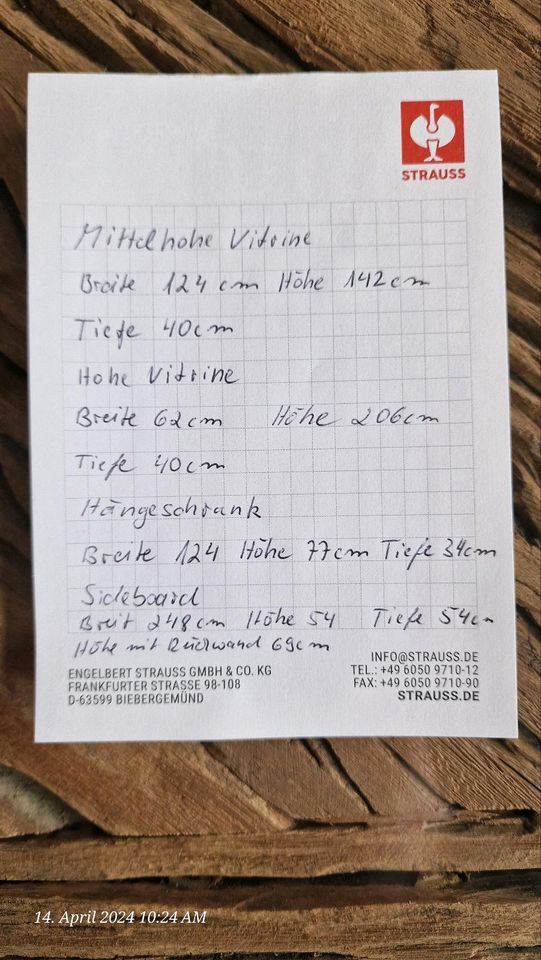 STRAUSS
Mittelhohe Vitrine
Breite 124 cm Höhe 142cm
Tiefe 40cm
Hohe Vitrine
Breite 62cm Höhe 206cm
Tiefe 40cm
Hängeschrank
Breite 124 Höhe 77cm Tiefe 34cm
Sideboard
Breit 248cm Höhe 54 Tiefe 54cm
Höhe mit Rückwand 69cm
ENGELBERT STRAUSS GMBH & CO. KG
FRANKFURTER STRASSE 98-108
D-63599 BIEBERGEMÜND
INFO@STRAUSS.DE
TEL.: +49 6050 9710-12
FAX: +49 6050 9710-90
STRAUSS.DE
14. April 2024 10:24 AM